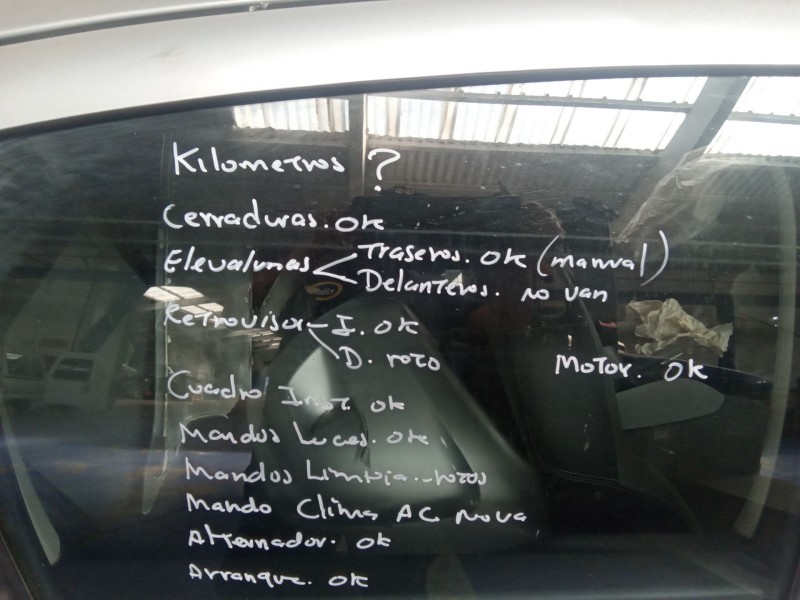 Kilometros ?
Cerraduras. ok
Elevalunas < Traseros. ok (manual)
Delanteros. no van
Retrovisor - I. ok
D. roto
Motor. ok
Cuadro Inst. ok
Mandos Luces. ok.
Mandos Limpia. rotos
Mando Clima AC no va
Alternador. ok
Arranque. ok